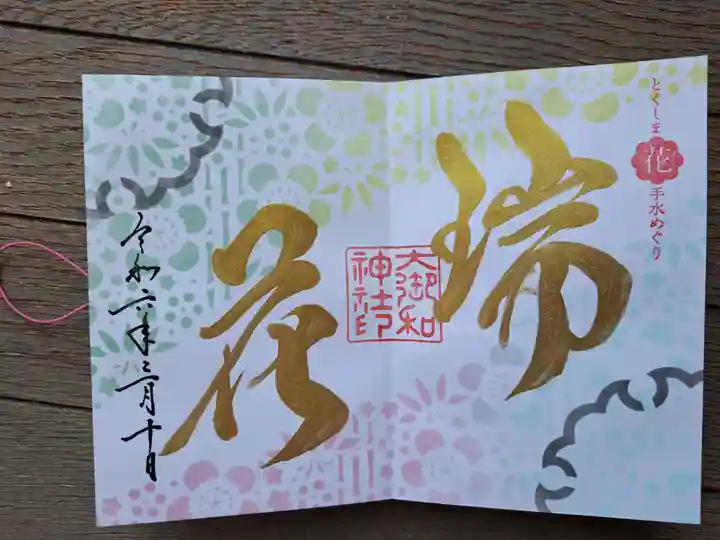 とくしま 花 手水めぐり
瑞
花
大御和
神社印
令和六年三月十日